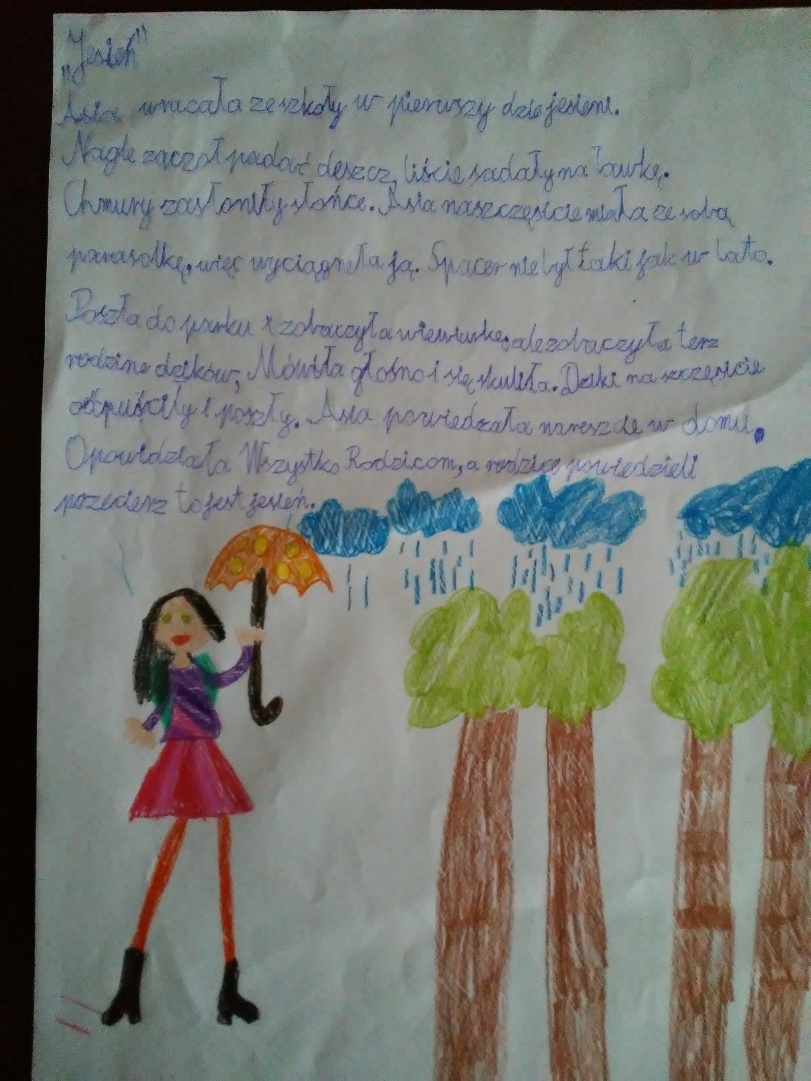 „Jesień"
Asia wracała ze szkoły w pierwszy dzie jesieni.
Nagle zaczoł padać deszcz, liście sadały na ławkę.
Chmury zasłoniły słońce. Asia naszczęście miała ze sobą
parasolkę, więc wyciągneła ją. Spacer nie był taki jak w lato.
Poszła do parku i zobaczyła wiewiurkę, ale zobaczyła terz
rodzine dzików, Mówiła głośno i się skuliła. Dziki na szczęście
odpuściły i poszły. Asia powiedzała nareszcie w domu.
Opowidziała Wszystko Rodzicom, a rodzice powiedzieli
przecierz to jest jesień.